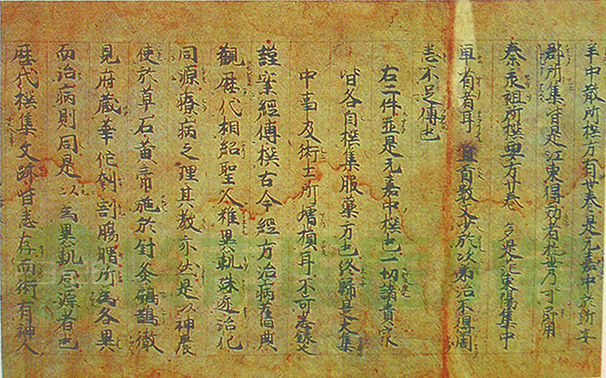 羊中散所撰方有卅卷是元嘉中於所安
郡所集皆是江東得効者於世乃可即用
秦承祖所撰要方廿卷 多是范東陽集中
單省者耳 首數文少於次第治不得周
悉不足傳也
右二件並是元嘉中撰也一切諸貴家
皆各自撰集服藥方也終歸是大集
中事及術士所增損耳不可悉錄也
謹案經傳撰古今經方治病舊典
觀歷代相紹聖人雖異軌殊迹治化
同源療病之理其教亦然是以神農
使於草石黃帝施於針灸鶣鵲徹
見府藏華佗刳割腸胃所為各異
而治病則同是以為異軌同源者也
歷代撰集文跡皆悉存而術有神人